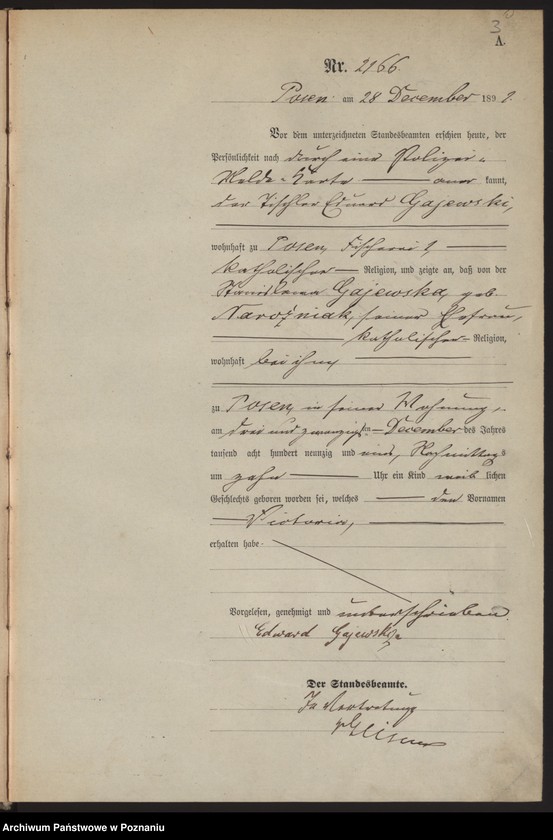 3
A.
Nr. 2166.
Posen am 28 December 1891.
Vor dem unterzeichneten Standesbeamten erschien heute, der
Persönlichkeit nach durch eine Polizei-
Melde-Karte — aner kannt,
der Tischler Eduard Gajewski,
wohnhaft zu Posen, Fischerei
katholischer — Religion, und zeigte an, daß von der
Stanislawa Gajewska, geb.
Narożniak, seiner Ehefrau,
— katholischer — Religion,
wohnhaft bei ihm —
zu Posen, in seiner Wohnung,
am drei und zwanzigsten — December des Jahres
tausend acht hundert neunzig und eins, Nachmittags
um zehn — Uhr ein Kind weib lichen
Geschlechts geboren worden sei, welches — den Vornamen
— Victoria, —
erhalten habe
Vorgelesen, genehmigt und unterschrieben
Edward Gajewski
Der Standesbeamte.
In Vertretung
Archiwum Państwowe w Poznaniu